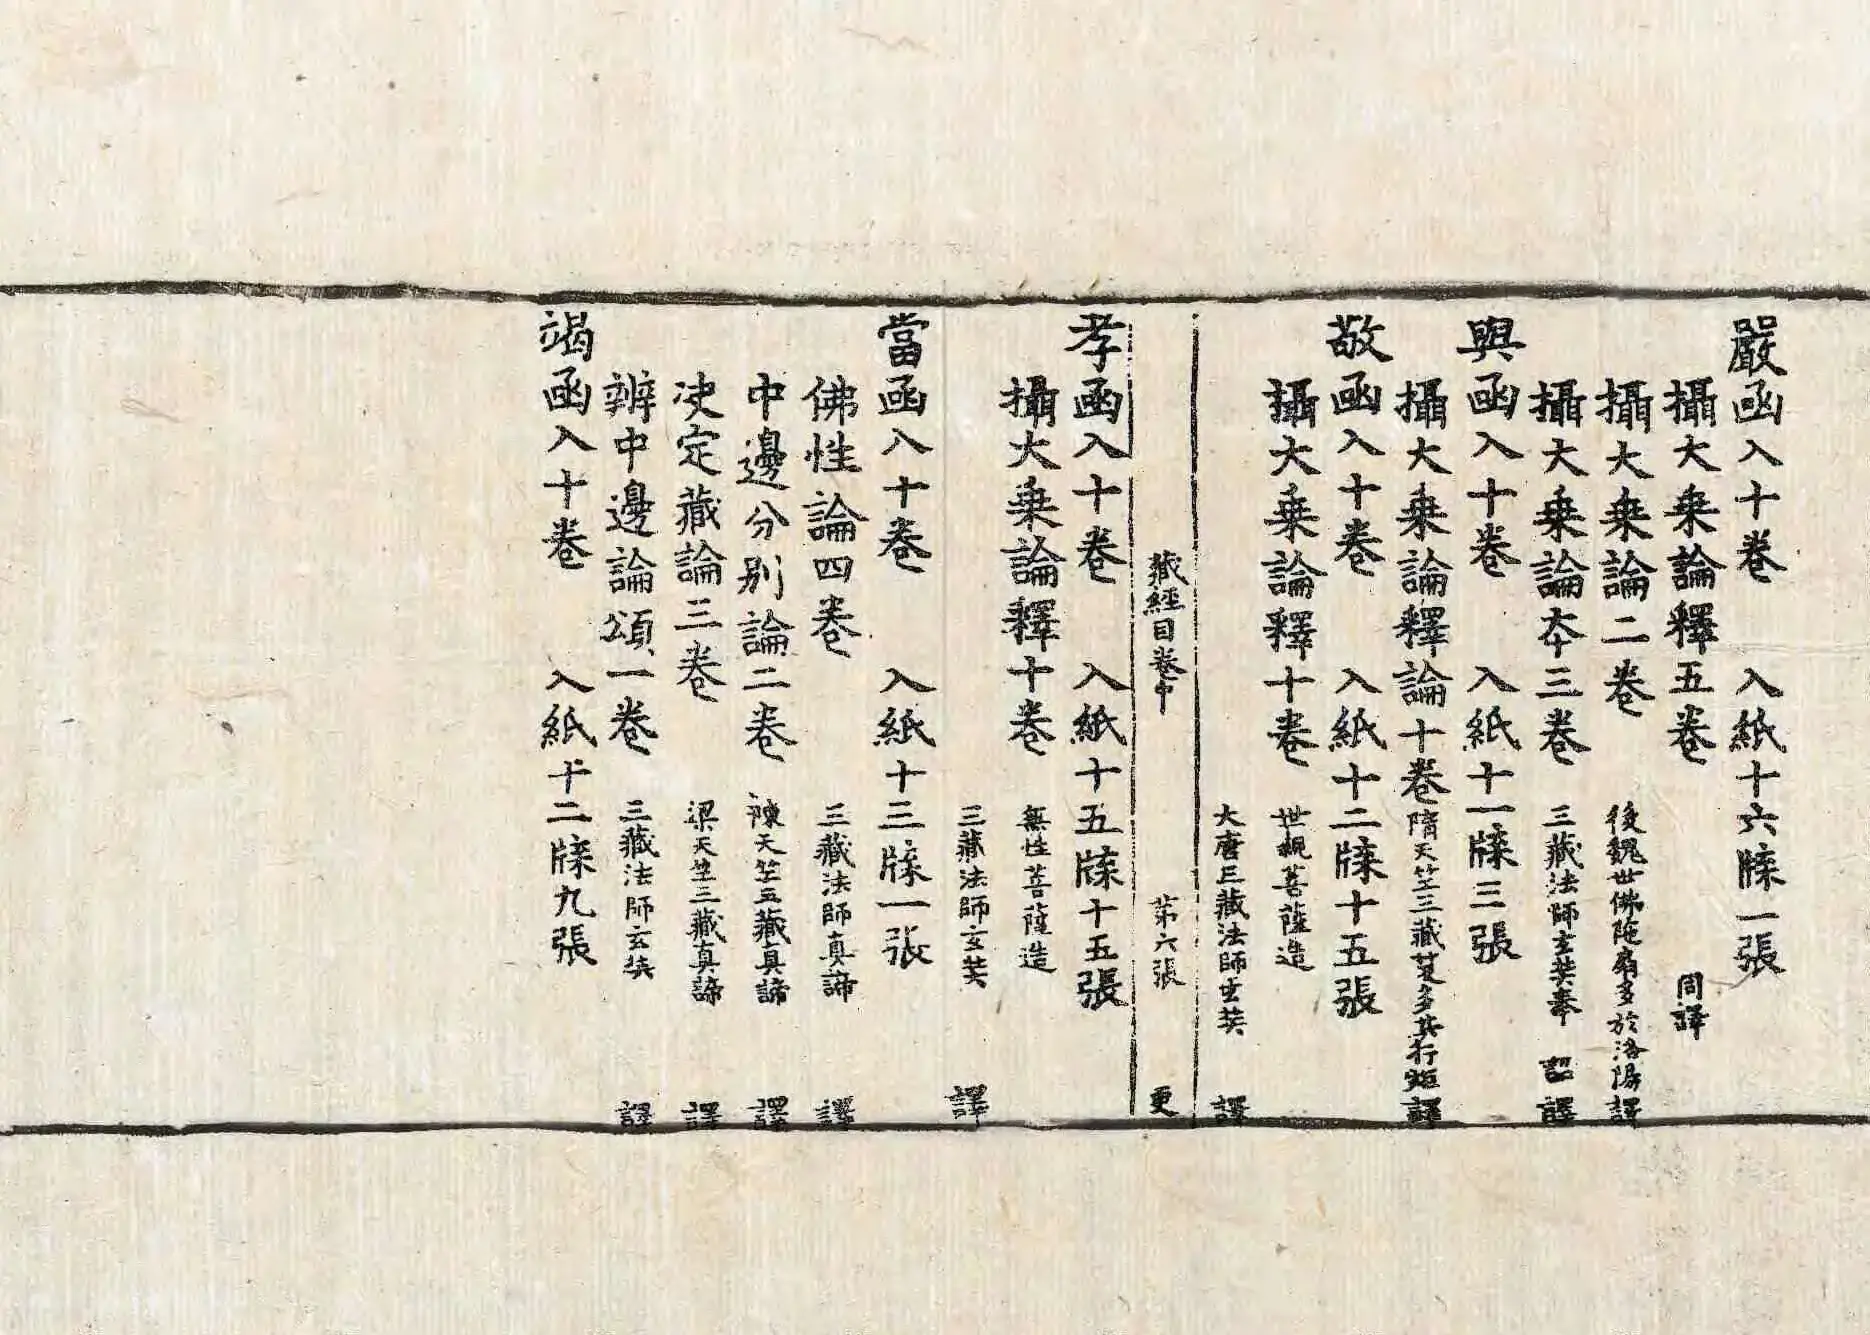 嚴函入十卷 入紙十六牒一張
攝大乗論釋五卷 同譯
攝大乗論二卷 後魏世佛陁扇多於洛陽譯
攝大乗論夲三卷 三藏法師玄奘奉 詔譯
與函入十卷 入紙十一牒三張
攝大乗論釋論十卷 隋天竺三藏芨多共行矩譯
敬函入十卷 入紙十二牒十五張
攝大乗論釋十卷 世親菩薩造
大唐三藏法師玄奘 譯
藏經目卷中 第六張 更
孝函入十卷 入紙十五牒十五張
攝大乗論釋十卷 無性菩薩造
三藏法師玄奘 譯
當函入十卷 入紙十三牒一張
佛性論四卷 三藏法師真諦 譯
中邊分別論二卷 陳天竺三藏真諦 譯
決定藏論三卷 梁天竺三藏真諦 譯
辨中邊論頌一卷 三藏法師玄奘 譯
竭函入十卷 入紙十二牒九張